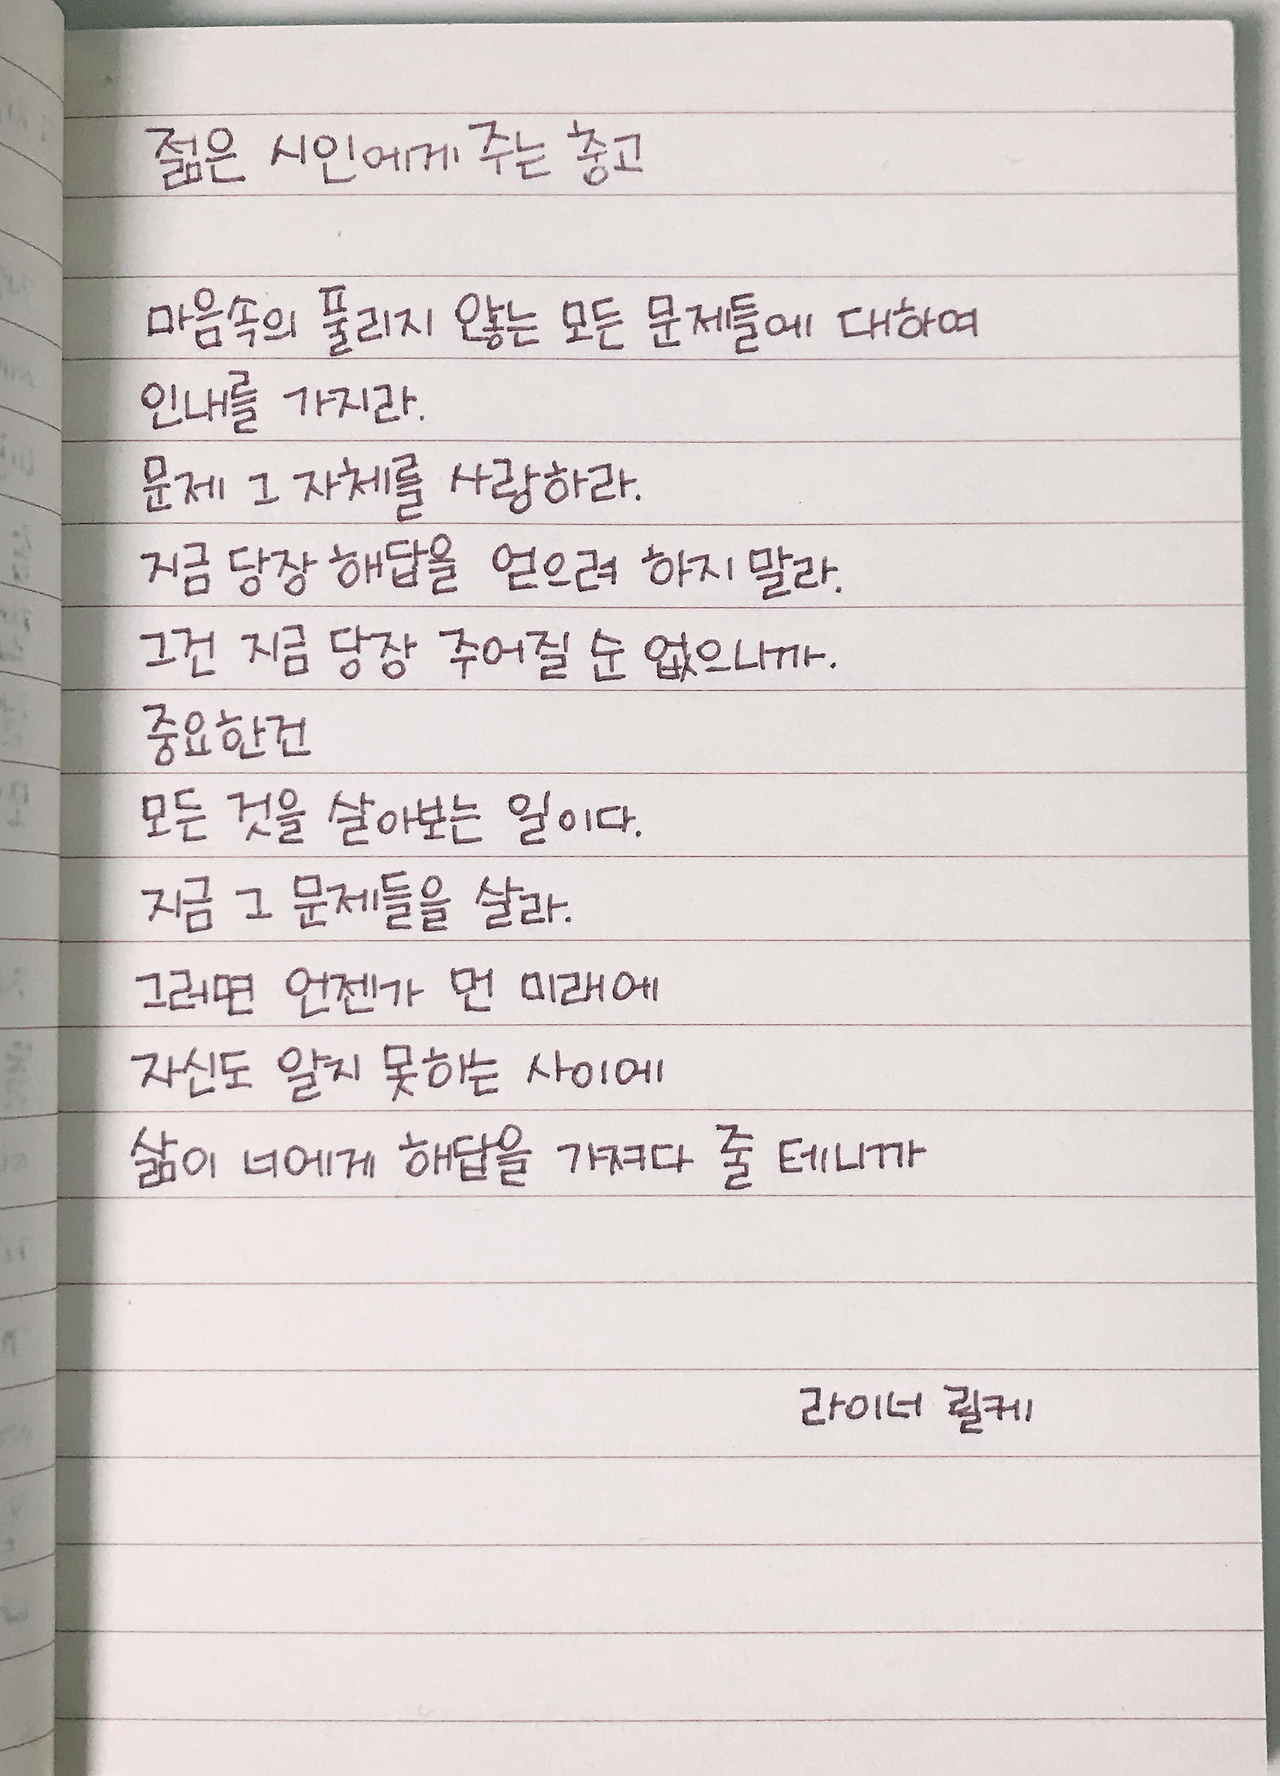 젊은 시인에게 주는 충고
마음속의 풀리지 않는 모든 문제들에 대하여
인내를 가지라.
문제 그 자체를 사랑하라.
지금 당장 해답을 얻으려 하지 말라.
그건 지금 당장 주어질 순 없으니까.
중요한건
모든 것을 살아보는 일이다.
지금 그 문제들을 살라.
그러면 언젠가 먼 미래에
자신도 알지 못하는 사이에
삶이 너에게 해답을 가져다 줄 테니까
라이너 릴케